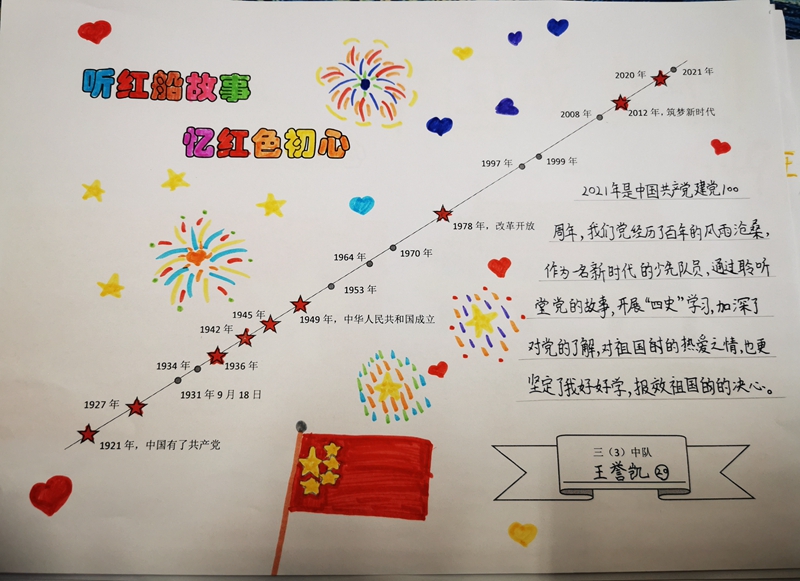 听红船故事
忆红色初心
2020年
2021年
2012年，筑梦新时代
2008年
1997年
1999年
1978年，改革开放
1964年
1970年
1953年
1945年
1949年，中华人民共和国成立
1942年
1936年
1934年
1931年9月18日
1927年
1921年，中国有了共产党
2021年是中国共产党建党100
周年，我们党经历了百年的风雨沧桑，
作为一名新时代的少先队员，通过聆听
堂党的故事，开展“四史”学习，加深了
对党的了解，对祖国的的热爱之情，也更
坚定了我好好学，报效祖国的的决心。
三（3）中队
王誉凯 29